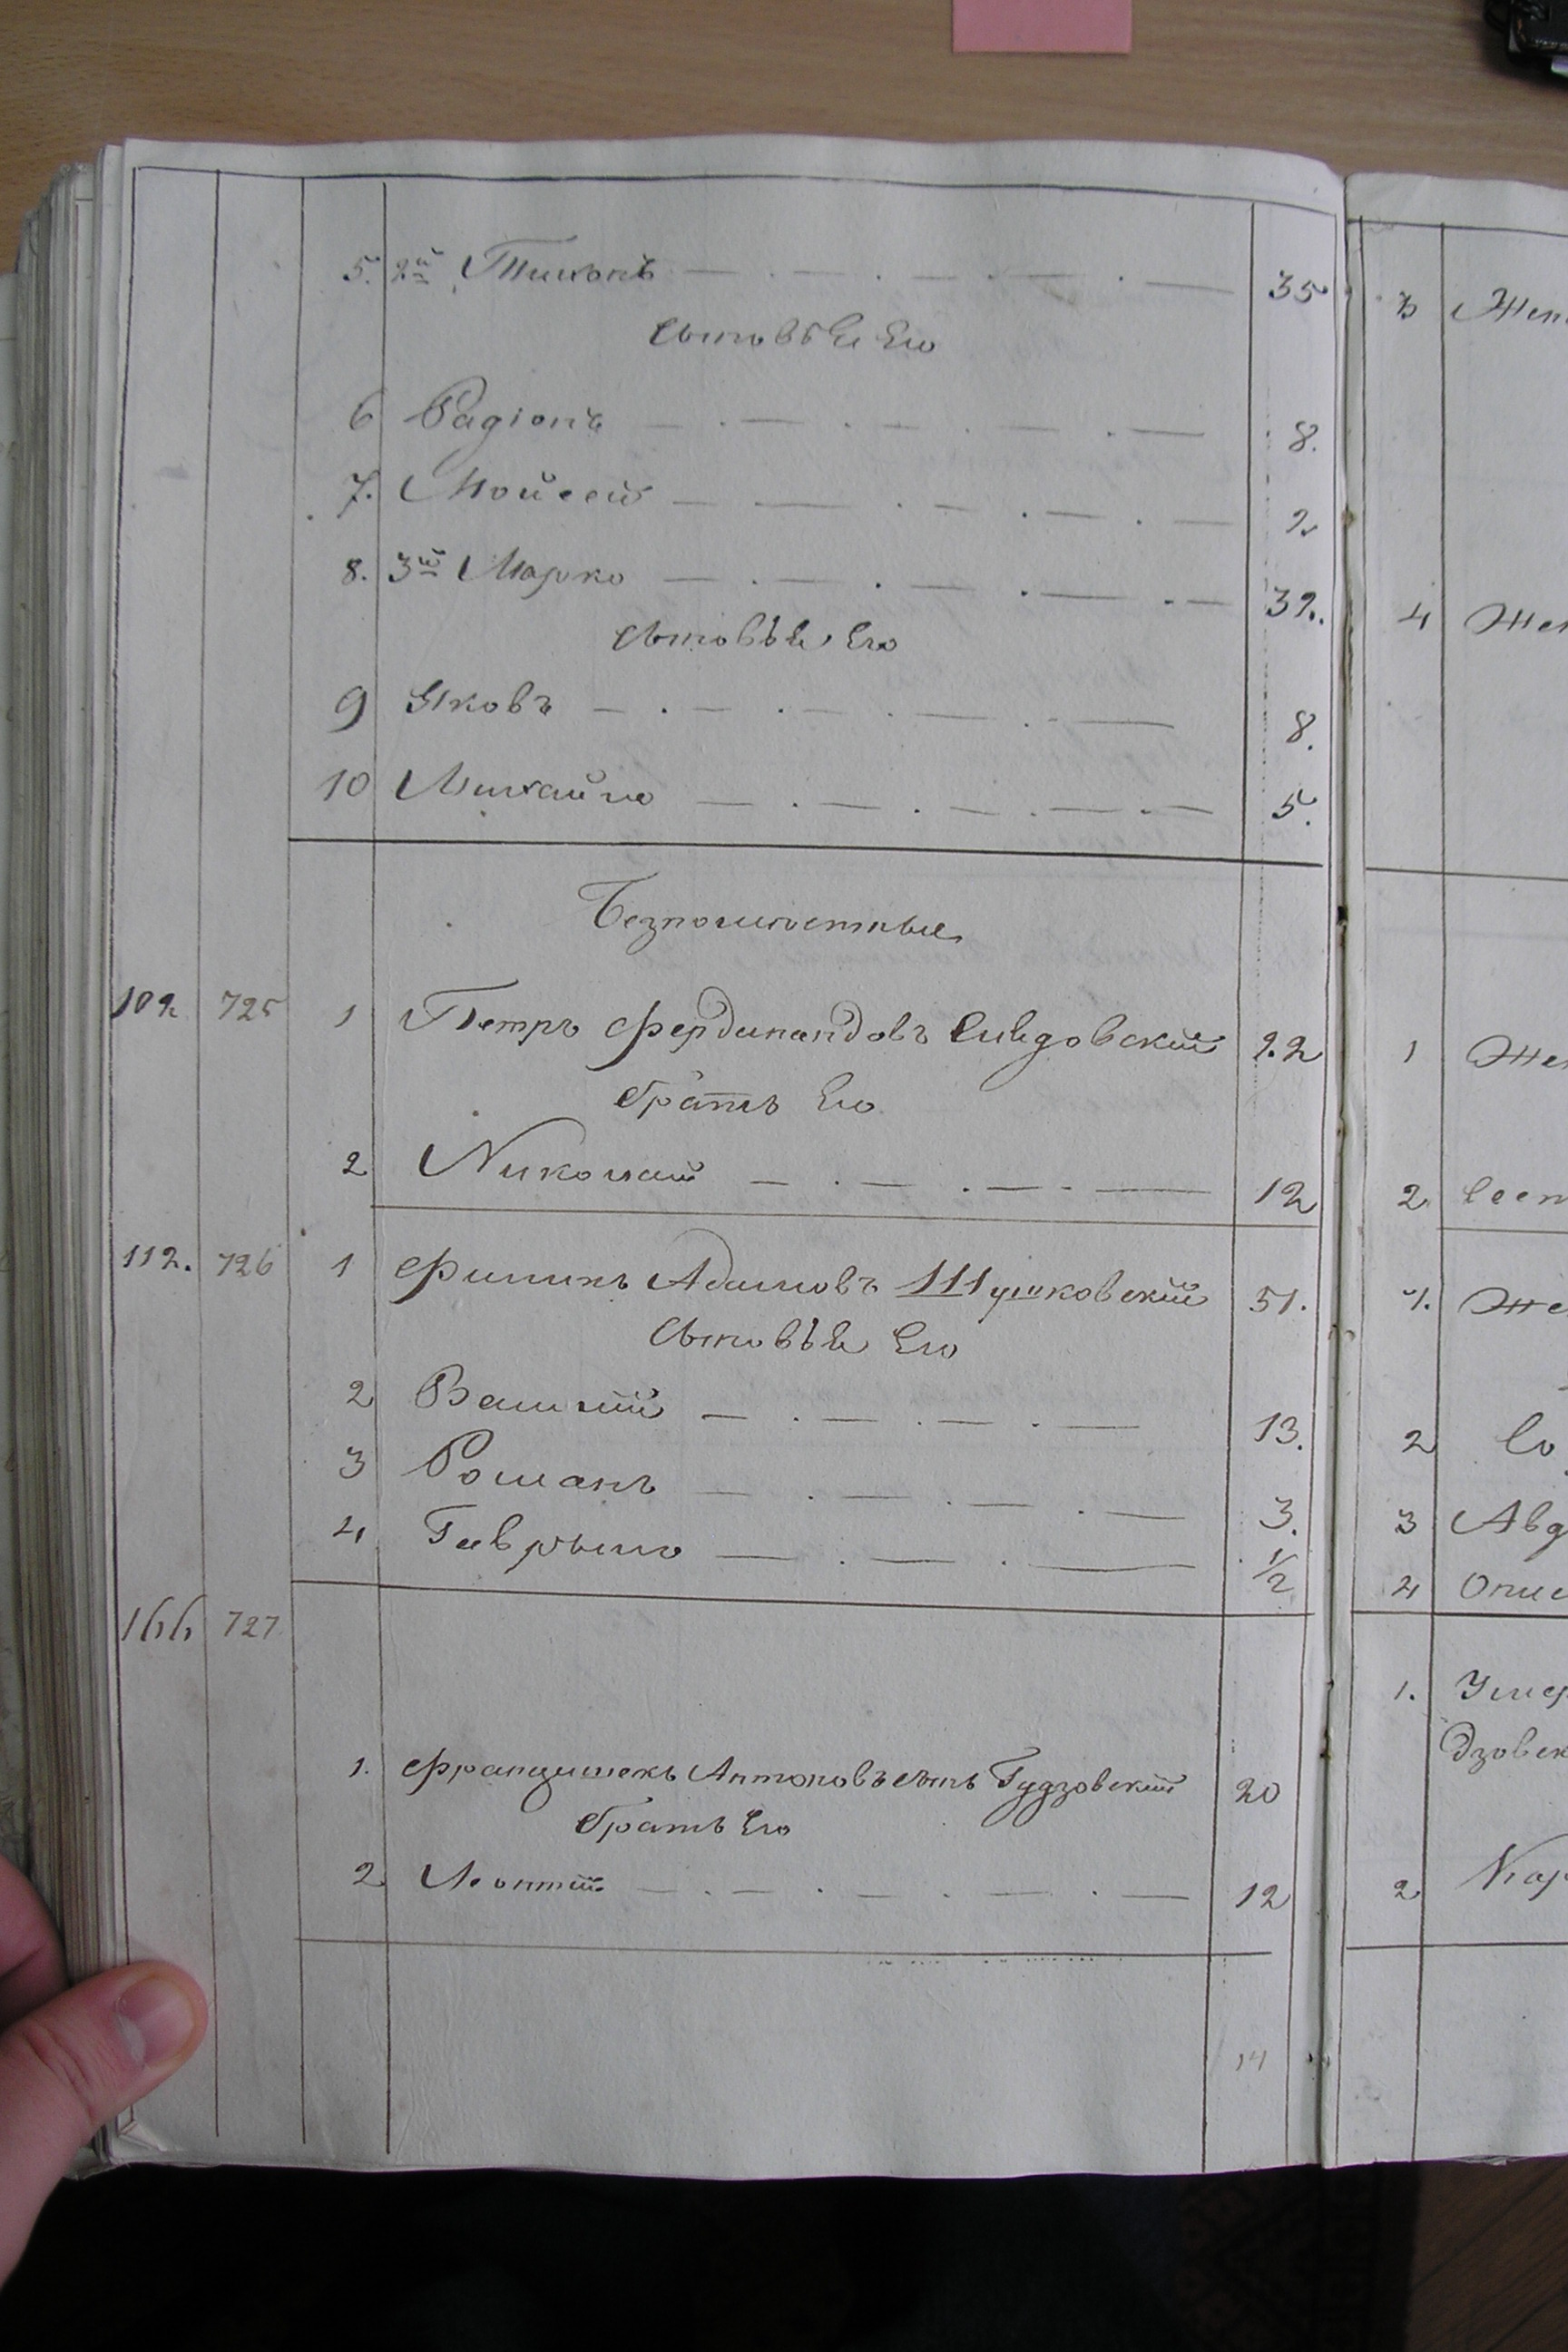 5. 2й Тихонъ — . — . — . — . — 35
Сыновѣя Его
6 Радіонъ — . — . — . — . — 8.
7. Мойсей — — . — . — . — 2
8. 3й Марко — . — . — . — . — 32.
Сыновѣя Его
9 Яковъ — . — . — . — . — 8.
10 Михайло — . — . — . — . — 5.
Безпомѣстные
102 725 1 Петръ Фердинандовъ 22
братъ Его
2 Николай — . — . — . — 12
112. 726 1 Филипъ Адамовъ Шушковскій 51.
Сыновѣя Его
2 Василій — . — . — . — 13.
3 Романъ — . — . — . — 3.
4 Гаврыло — . — . — 1/2
166 727
1. Францишекъ Антоновъ сынъ Гудзовскій 20
братъ Его
2 Леонтій — . — . — . — . — 12
14
3 Жен
4 Жен
1 Жен
2 Сест
1. Же
2 Со
3 Авд
4 Опис
1. Умер
дзовск
2 Кар